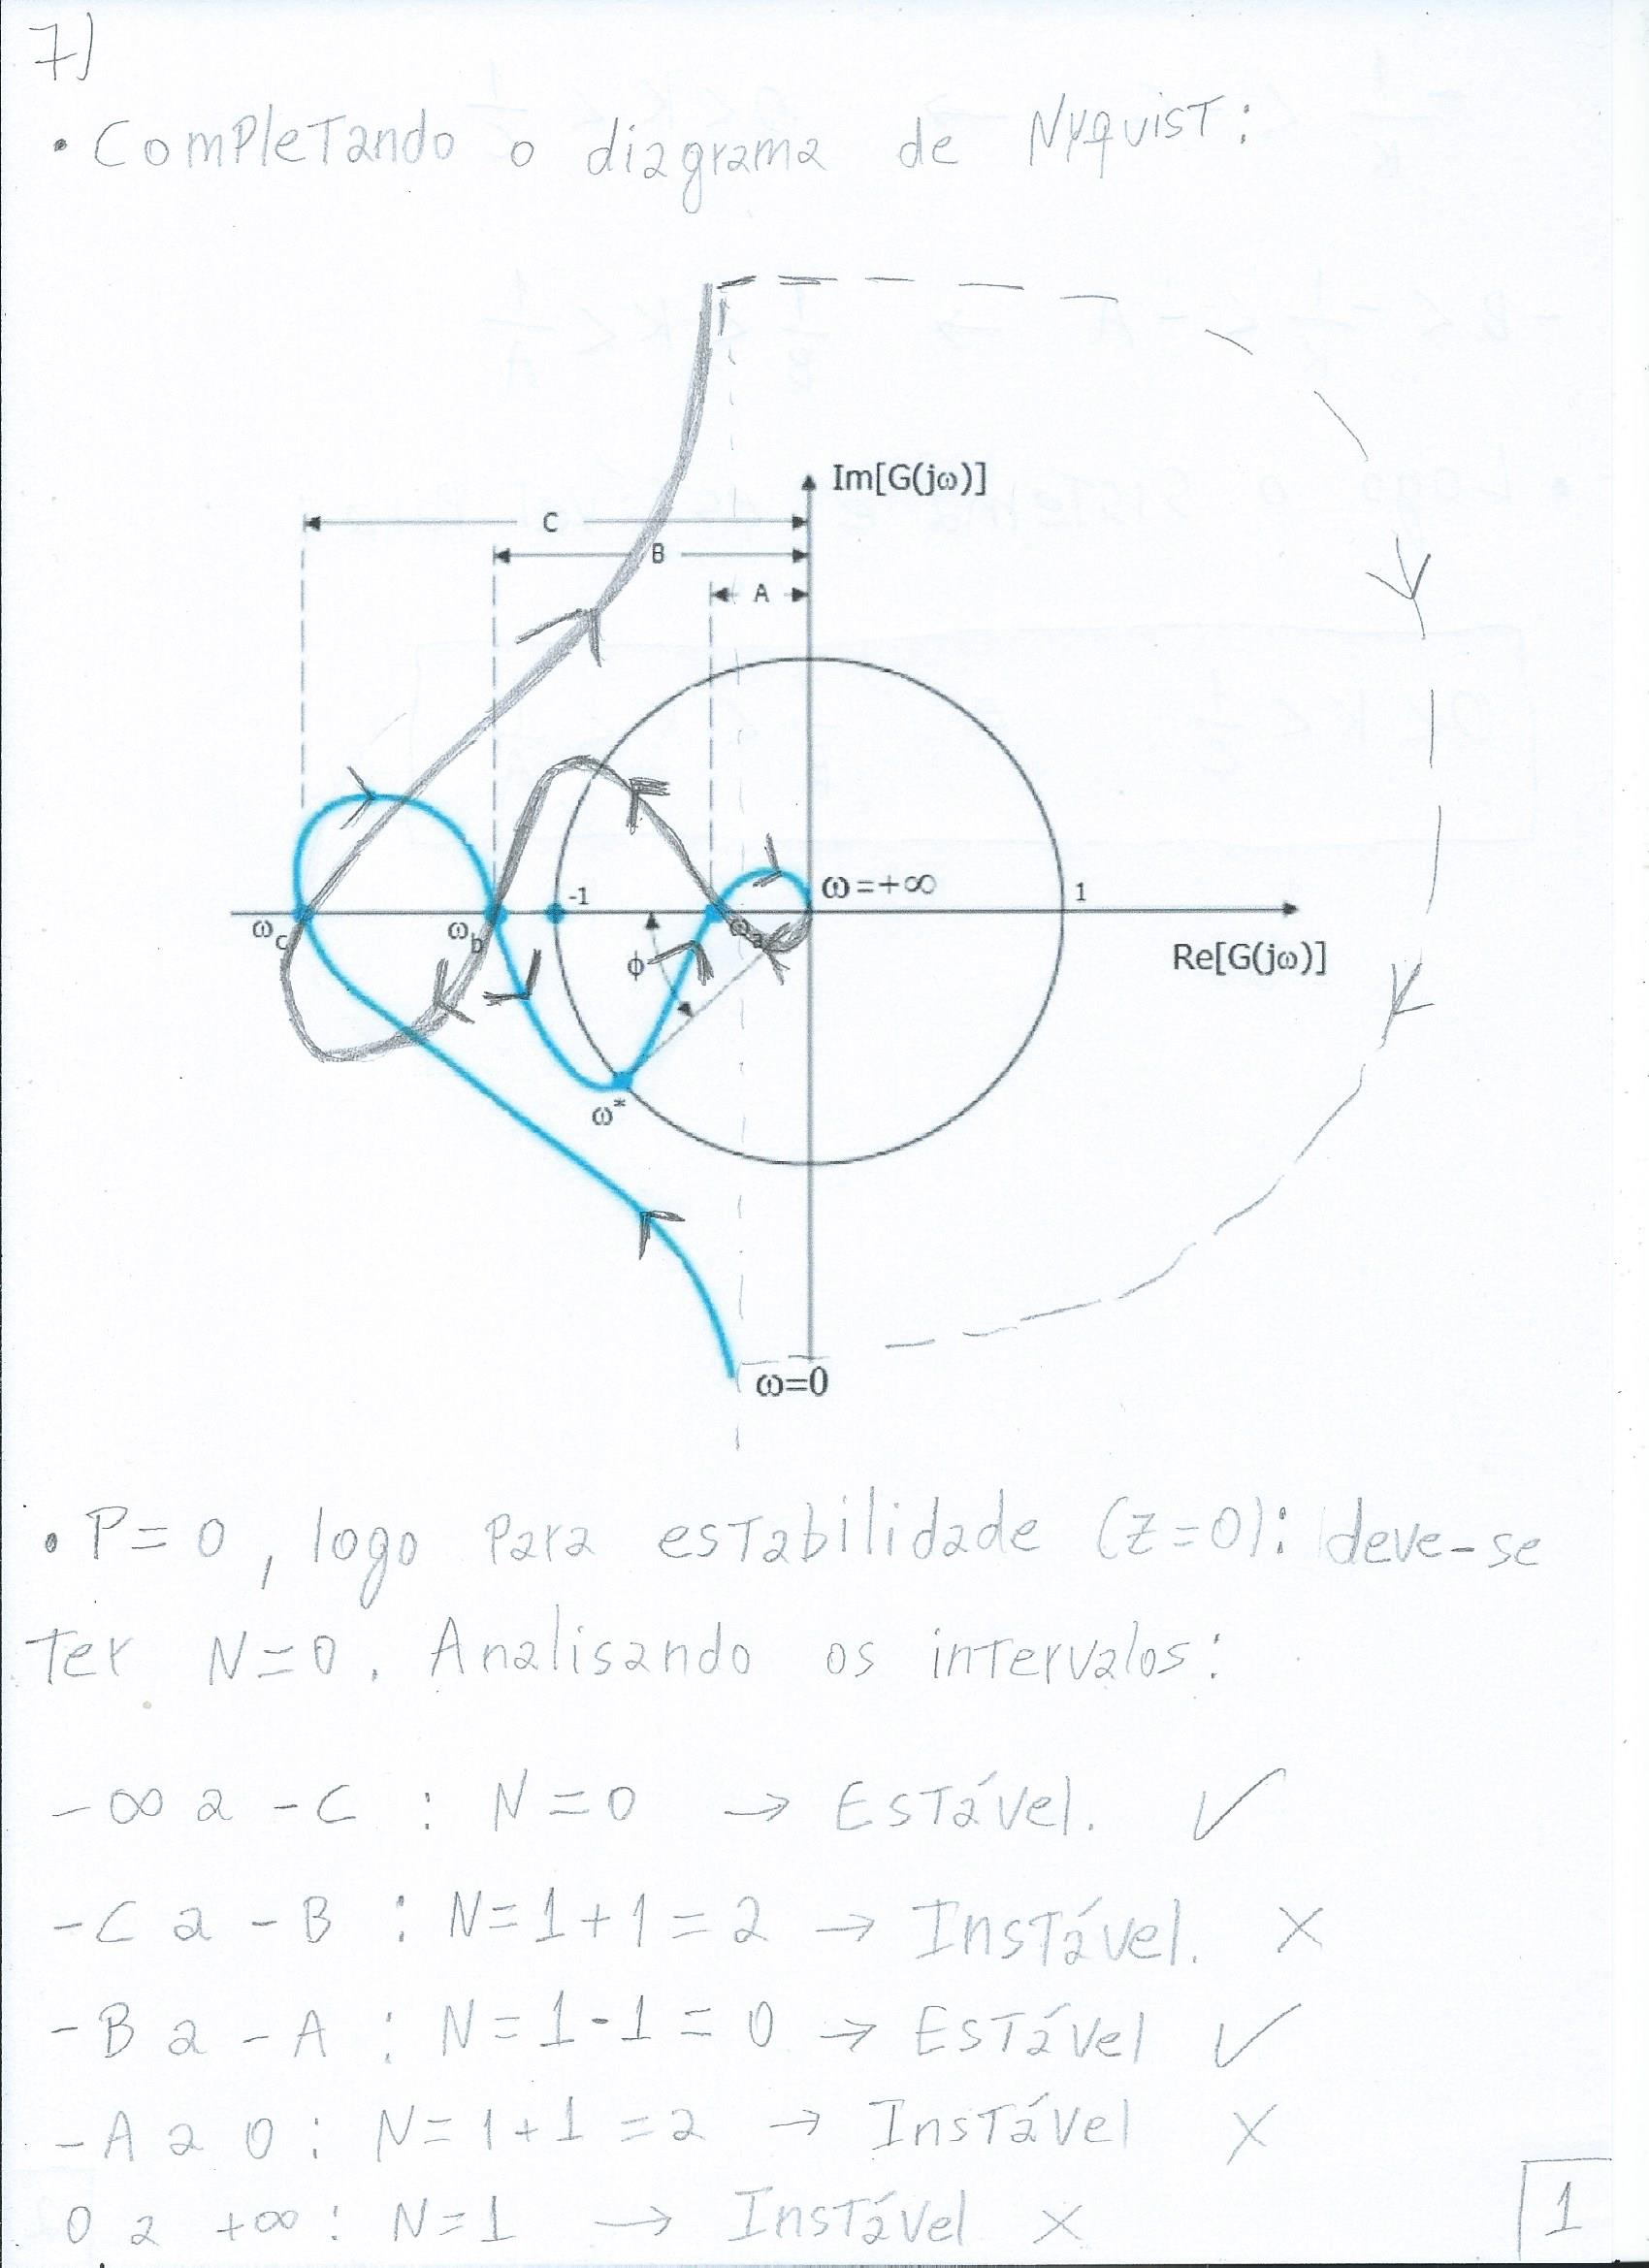 7)
• Completando o diagrama de Nyquist:
Im[G(jω)]
C
B
A
-1
ω=+∞
1
ωc
ωb
ωa
ϕ
Re[G(jω)]
ω*
ω=0
• P=0, logo para estabilidade (Z=0): deve-se
ter N=0. Analisando os intervalos:
-∞ a -C : N=0 → Estável. ✓
-C a -B : N=1+1=2 → Instável. X
-B a -A : N=1-1=0 → Estável ✓
-A a 0 : N=1+1=2 → Instável X
0 a +∞ : N=1 → Instável X
1